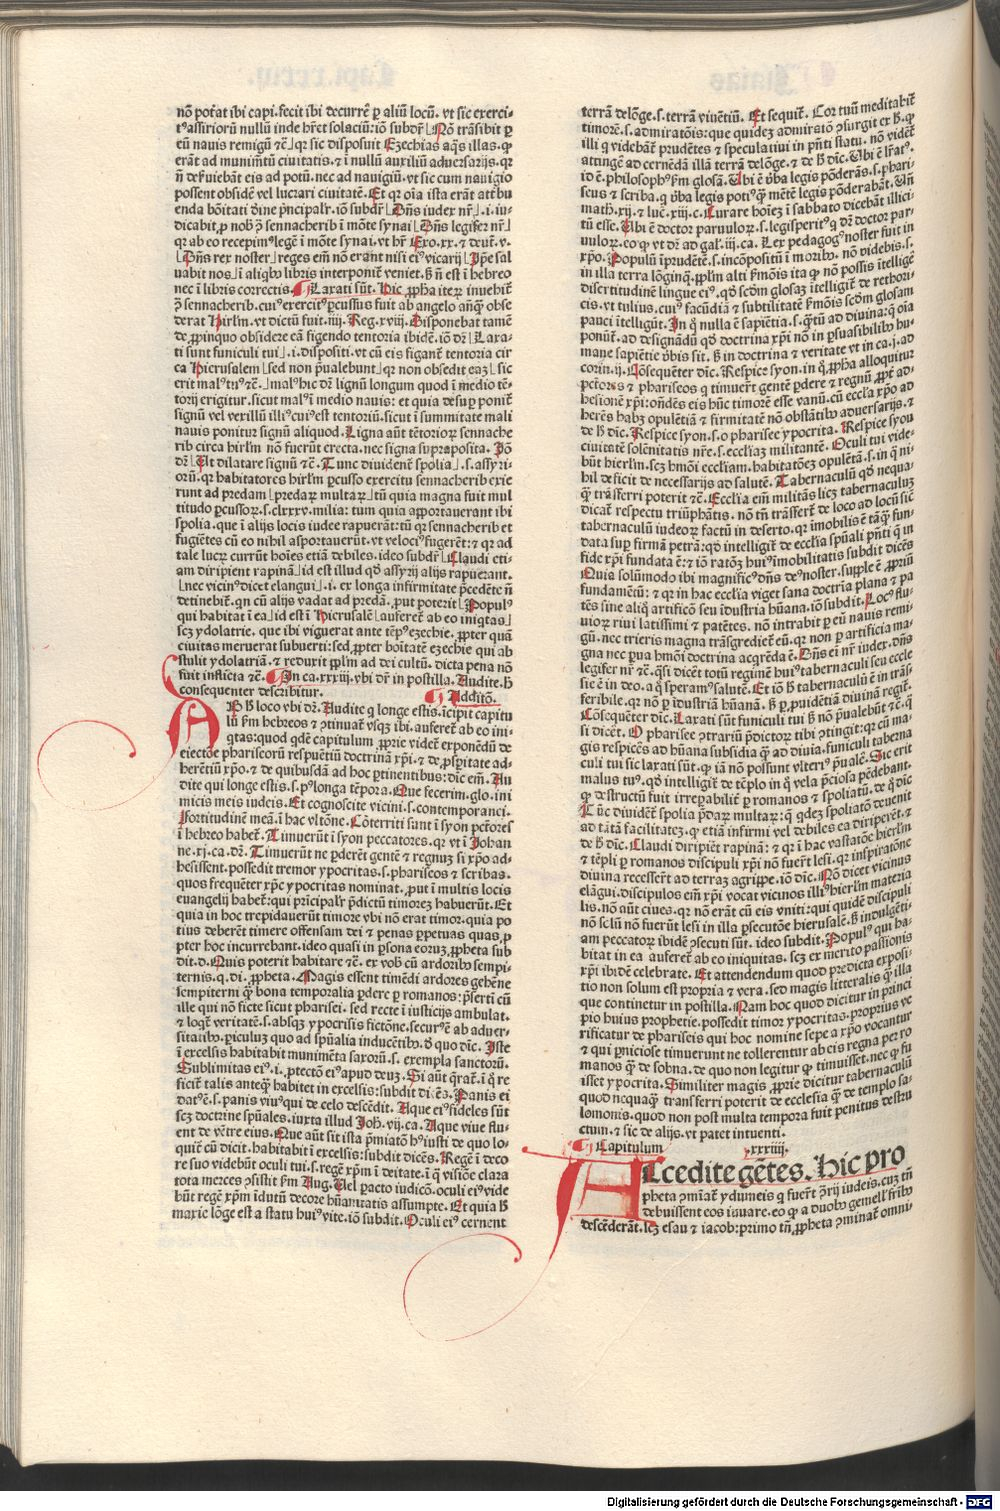 nō pot̄at ibi capi. fecit ibi decurrē p aliū locū. vt sic exerci-
tꝰ assirioꝝ nullū inde hr̄et solaciū: iō subdr̄ Nō trāsibit p
eū nauis remigū ⁊c̄ qꝛ sic disposuit Ezechias aq̄s illas. ꝙ
erāt ad munimētū ciuitatis. ⁊ ī nullū auxiliū aduersarijs. qꝛ
possent obsidē vel lucrari ciuitatē. Et qꝛ oīa ista erāt attribu
enda bōitati diuine pͥncipalr̄. iō subdr̄ Dn̄s iudex nr̄ .i. iu-
dicabit ꝓ nob ꝯ sennacherib ī mōte synai Dn̄s legifer nr̄
qꝛ ab eo recepimꝰ legē ī mōte synai. vt hr̄ Exo. xx. ⁊ deut. v.
Dn̄s rex noster reges em̄ nō erant nisi eiꝰ vicarij Ip̄e sal
uabit nos ī aliqͥbꝰ libris interponit̄ veniet. ꝙ nō est ī hebreo
nec ī libris correctis. Laxati sūt. Hic ꝓpha iteꝝ inuehit̄
ꝯ sennacherib. cuiꝰ exercitꝰ ꝑcussus fuit ab angelo anq̄ obse
derat Hirl̄m. vt dictū fuit. iiij. Reg. xviii. Disponebat tamē
de ꝓpinquo obsidere eā figendo tentoria ibidē. iō dr̄ Laxa-
ti sunt funiculi tui .i. dispositi. vt cū eis figant̄ tentoria cir
ca Hierusalem sed non p̄ualebunt qꝛ non obsedit eaꝫ sic
erit malꝰ tuꝰ ⁊c̄. malꝰ hic dr̄ lignū longum quod ī medio tē-
torij erigitur. sicut malꝰ ī medio nauis: et quia desup ponit̄
signū vel verillū illiꝰ cuiꝰ est tentoriū. sicut ī summitate mali
nauis ponitur signū aliquod. Ligna aūt tētorioꝝ sennache
rib circa hirl̄m nō fuerūt erecta. nec signa supraposita. Iō
dr̄ Ut dilatare signū ⁊c̄. Tunc diuident̄ spolia .s. assyri-
oꝝ. qꝛ habitatores hirl̄m ꝑcusso exercitu sennacherib exie
runt ad predam predaꝝ multaꝝ tū quia magna fuit mul
titudo ꝑcussoꝝ. s. clxxxv. milia: tum quia apportauerant ibi
spolia. que ī alijs locis iudee rapuerāt: tū qꝛ sennacherib et
fugiētes cū eo nihil asportauerūt. vt velociꝰ fugerēt: ⁊ qꝛ ad
tale lucꝝ currūt hoīes etiā debiles. ideo subdr̄ Claudi eti-
am diripient rapinā id est illud qd̄ assyrij alijs rapuerant.
nec vicinꝰ dicet elangui .i. ex longa infirmitate p̄cedēte ꝙ
detinebit̄. qn cū alijs vadat ad predā. ꝓut poterit Populꝰ
qui habitat ī ea id est ī Hierusalē auferet̄ ab eo iniqͥtas
scꝫ ydolatrie. que ibi viguerat ante tēpꝰ ezechie. ꝓpter quā
ciuitas meruerat subuerti: sed ꝓpter boitatē ezechie qui ab
stulit ydolatriā. ⁊ reduxit ppl̄m ad dei cultū. dicta pena nō
fuit inflicta ⁊c̄. In ca. xxxiij. vbi dr̄ in postilla. Audite. ꝙ
consequenter describitur. Additō.
AD ꝙ loco vbi dr̄. Audite q̄ longe estis. īcipit capitu
lū ẜm hebreos ⁊ ꝯtinuat̄ vsqꝫ ibi. auferet̄ ab eo ini-
qtas: quod qdē capitulum ꝓprie videt̄ exponēdū de
eiectōe phariseoꝝ respuētiū doctrinā xpͥi. ⁊ de ꝓsperitate ad-
herētiū xpō. ⁊ de quibusdā ad hoc ꝑtinentibus: dic̄ em̄. Au
dite qui longe estis. s. ꝑ longa tēpora. Que fecerim. glo. ini
micis meis iudeis. Et cognoscite vicini. s. contemporanei.
Fortitudinē meā. ī hac vltōne. Cōterriti sunt ī syon pctōres
ī hebreo habet̄. Timuerūt ī syon peccatores. qꝛ vt ī Johan
ne. xj. ca. dr̄. Timuerūt ne ꝑderēt gentē ⁊ regnuꝫ si xpō ad-
hesissent. possedit tremor ypocritas. s. phariseos ⁊ scribas.
quos frequēter xps̄ ypocritas nominat. ꝓut ī multis locis
euangelij habet̄: qui pͥncipalr̄ p̄dictū timoreꝫ habuerūt. Et
quia in hoc trepidauerūt timore vbi nō erat timor. quia po
tius deberēt timere offensam dei ⁊ penas ꝑpetuas quas ꝓ
pter hoc incurrebant. ideo quasi in ꝑsona eoꝝ ꝓpheta sub
dit. d. Quis poterit habitare ⁊c̄. ex vob cū ardoribꝰ sempi-
ternis. q. di. ꝓpheta. Magis essent timēdi ardores gehēne
sempiterni q̄ bona temporalia ꝑdere p romanos: ꝑserti cū
ille qui nō ficte sicut pharisei. sed recte ī iusticijs ambulat.
⁊ loqt̄ veritatē. s. absqꝫ ypocrisis fictōne. securꝰ ē ab aduer-
sitatibꝰ. ꝑiculuꝫ quo ad spūalia inducētibꝰ. d̄ quo dic̄. Iste
ī excelsis habitabit munimēta saxorū. s. exempla sanctorū.
Sublimitas eiꝰ. i. ꝓtectō eiꝰ apud deuꝫ. Si aūt q̄rat̄. ī q̄ re
ficit̄ talis anteq̄ habitet in excelsis: subdit dicēs. Panis ei
datꝰ ē. s. panis viuꝰ qui de celo descēdit. Aque eiꝰ fideles sūt
scꝫ doctrine spūales. iuxta illud Joh. vij. ca. Aque viue flu-
ent de vētre eius. Que aūt sit ista p̄miatō hꝰ iusti de quo lo-
quit̄ cū dicit. habitabit ī excelsis: subdit dicēs. Regē ī deco
re suo videbūt oculi tui. s. regē xpm̄ ī deitate. ī q̄ visiōe clara
tota merces ꝯsistit ẜm Aug. Vel ꝑacto iudicō. oculi eiꝰ vide
būt regē xpm̄ īdutū decore hūanitatis assumpte. Et quia ꝙ
maxie lōge est a statu huiꝰ vite. iō subdit. Oculi eiꝰ cernent
terrā delōge. s. terrā viuētiū. Et sequit̄. Cor tuū meditabit̄
timorē. s. admiratōis: que quidez admiratō ꝯsurgit ex ꝙ. ꝙ
illi q̄ videbāt̄ prudētes ⁊ speculatiui in pn̄ti statu. nō vidēt̄
attingē ad cernēdā illā terrā delōge. ⁊ de ꝙ dic̄. Ubi ē lr̄atꝰ.
id ē. philosophꝰ ẜm glosā. Ubi ē v̄ba legis pōderās. s. phari-
seus ⁊ scriba. q̄ v̄ba legis potiꝰ q̄ mētē legis pōderabāt. Un̄
math. xij. ⁊ luc̄. xiij. c. Curare hoieꝫ ī sabbato dicebāt illici-
tū esse. Ubi ē doctor paruuloꝝ. s. legisperitꝰ q̄ dr̄ doctor par-
uuloꝝ. eo ꝙ vt dr̄ ad gal̄. iij. ca. Lex pedagogꝰ noster fuit in
xpō. Populū īprudētē. s. incōpositū ī moribꝰ. nō videbis. s.
in illa terra lōginq̄. ppl̄m alti ẜmōis ita ꝙ nō possis ītelligē
disertitudinē lingue eiꝰ. qd̄ scd̄m glosaꝫ ītelligit̄ de rethori-
cis. vt tulius. cuiꝰ facūdiā ⁊ subtilitatē ẜmōis scd̄m glosam
pauci ītelligūt. In q̄ nulla ē sapiētia. s. q̄tū ad diuina: q̄ oīa
ponūt̄. ad designādū qd̄ doctrina xpͥi nō in ꝑsuasibilibꝰ hu-
mane sapiētie v̄bis sit. ꝙ in doctrina ⁊ veritate vt in ca. j. ad
corin. ij. Cōsequēter dic̄. Respice syon. in q̄ ꝓpha alloquitur
pctōres ⁊ phariseos q̄ timuert̄ gentē ꝑdere ⁊ regnū ꝓpt̄ ad-
hesionē xpͥi: on̄dēs eis hūc timorē esse vanū. cū eccl̄ia xpō ad
herēs habꝫ opulētiā ⁊ firmitatē nō obstātibꝰ aduersarijs. ⁊
de ꝙ dic̄. Respice syon. s. o pharisee ypocrita. Respice syon
ciuitatē solēnitatis nr̄e. s. eccl̄iaꝫ militantē. Oculi tui vide-
būt hierl̄m. scꝫ hmōi eccl̄iam. habitatōeꝫ opulētā. s. in q̄ ni-
hil deficit de necessarijs ad salutē. Tabernaculū qd̄ nequa-
q̄ trāsferri poterit ⁊c̄. Eccl̄ia em̄ militās licꝫ tabernaculuꝫ
dicat̄ respectu triūphātis. nō tn̄ trāsfert̄ de loco ad locū sic̄
tabernaculū iudeoꝝ factū in deserto. qꝛ imobilis ē tāq̄ fun-
data sup firmā petrā: qd̄ intelligit̄ de eccl̄ia spūali pn̄ti q̄ in
fide xpͥi fundata ē: ⁊ iō ratōꝫ huiꝰ imobilitatis subdit dicēs
Quia solūmodo ibi magnificꝰ dn̄s deꝰ noster. supple ē ꝓpriū
fundamētū: ⁊ qꝛ in hac eccl̄ia viget sana doctrīa plana ⁊ pa
tēs sine aliq̄ artificō seu īdustria hūana. iō subdit. Locꝰ flu-
uioꝝ riui latissimi ⁊ patētes. nō intrabit p eū nauis remi
gū. nec trieris magna trāsgrediet̄ eū. qꝛ non p artificia ma-
gna nec p̄ua hmōi doctrina acqrēda ē. Dn̄s ei nr̄ iudex. dn̄s
legifer nr̄ ⁊c̄. qͥsi dicēt totū regimē huiꝰ tabernaculi seu eccle
sie ē in deo. a q̄ speramꝰ salutē. Et iō ꝙ tabernaculū ē in trās
feribile. qꝛ non p īdustriā hūanā. ꝙ p p̄uidētiā diuinā regit̄.
Cōseqn̄ter dic̄. Laxati sūt funiculi tui ꝙ nō p̄ualebūt ⁊c̄. q̄
si dicēt. O pharisee ꝯtrariū p̄dictoꝝ tibi ꝯtingit: qꝛ cū ma-
gis respicēs ad hūana subsidia q̄ ad diuia. funiculi taberna
culi tui sic laxati sūt. ꝙ iā nō possunt vlteriꝰ p̄ualē. Sic erit
malus tuꝰ. qd̄ intelligit̄ de tēplo in q̄ vela p̄ciosa pēdebant.
ꝙ destructū fuit irrepabilit̄ p romanos ⁊ spoliatū. de q̄ dic̄
Tūc diuidēt̄ spolia p̄daꝝ multaꝝ: q̄ qdeꝫ spoliatō deuenit
ad tātā facilitateꝫ. ꝙ etiā infirmi vel debiles ea diriperēt. ⁊
de ꝙ dic̄. Claudi diripiēt rapinā: ⁊ qꝛ ī hac vastatōe hierl̄m
⁊ tēpli p romanos discipuli xpͥi nō fuert̄ lesi. qꝛ inspiratōne
diuina recessert̄ ad terraꝫ agrippe. iō dic̄. Nō dicet vicinus
elāgui. discipulos em̄ xpͥi vocat vicinos illiꝰ hierl̄m materia
lis. nō aūt ciues. qꝛ nō erāt cū eis vniti: qui quidē discipuli
nō solū nō fuerūt lesi in illa ꝑsecutōe hierusalē. ꝙ indulgēti-
am peccatoꝝ ibidē ꝯsecuti sūt. ideo subdit. Populꝰ qui ha-
bitat in ea auferet̄ ab eo iniquitas. scꝫ ex merito passionis
xpͥi ibidē celebrate. Et attendendum quod predicta exposi-
tio non solum est propria ⁊ vera. sed magis litteralis q̄ illa
que continetur in postilla. Nam hoc quod dicitur in princi
pio huius prophetie. possedit timor ypocritas. proprius ve
rificatur de phariseis qui hoc nomine sepe a xpō vocantur
⁊ qui ꝑniciose timuerunt ne tollerentur ab eis regna per ro
manos q̄ de sobna. de quo non legitur ꝙ timuisset. nec ꝙ fu
isset ypocrita. Similiter magis ꝓprie dicitur tabernaculū
quod nequaq̄ transferri poterit de ecclesia q̄ de templo sa-
lomonis. quod non post multa tempora fuit penitus destru
ctum. ⁊ sic de alijs. vt patet intuenti.
Capitulum .xxxiiij.
ACcedite gētes. Hic pro
pheta ꝯmīat̄ ydumeis q̄ fuert̄ ꝯrij iudeis. cuꝫ tn̄
debuissent eos iuuare. eo ꝙ a duobꝰ gemell̄ frībꝰ
descēderāt. scꝫ esau ⁊ iacob: primo tn̄ ꝓpheta ꝯminat̄ omni
Digitalisierung gefördert durch die Deutsche Forschungsgemeinschaft - DFG